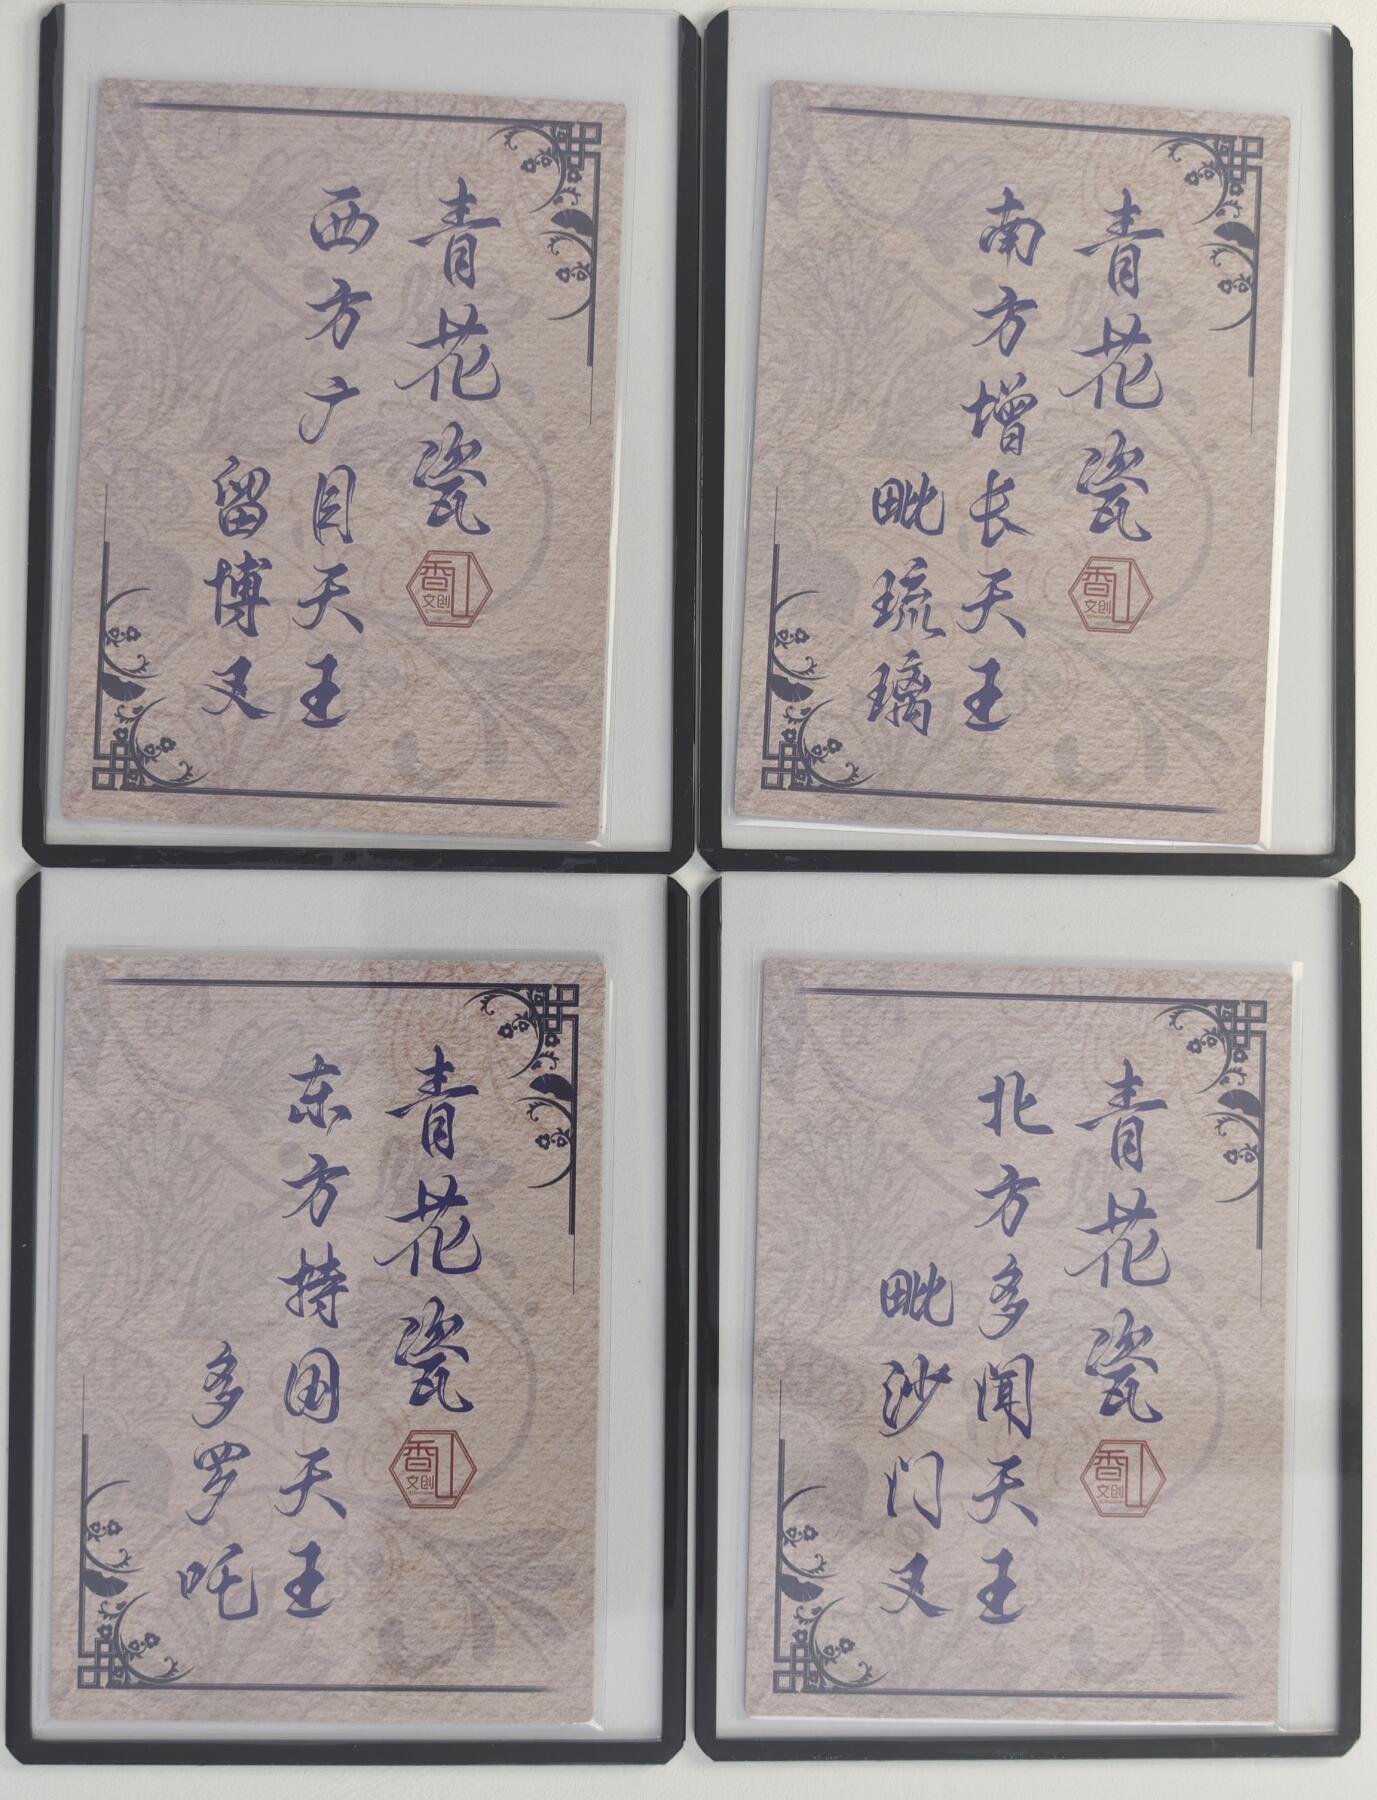 青花瓷
香山
文创
西方广目天王
留博叉
青花瓷
香山
文创
南方增长天王
毗琉璃
青花瓷
香山
文创
东方持国天王
多罗吒
青花瓷
香山
文创
北方多闻天王
毗沙门叉